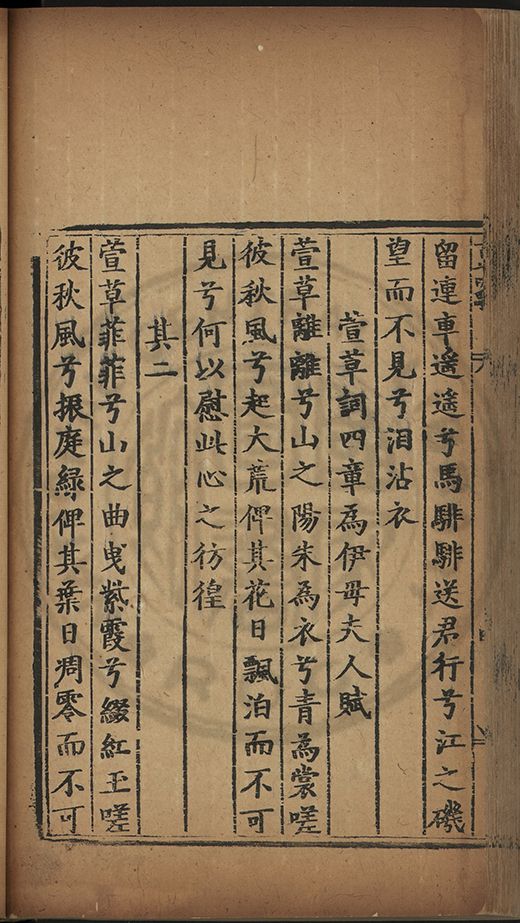 留連車遙遙兮馬騑騑送君行兮江之磯
望而不見兮泪沾衣
萱草詞四章為伊母夫人賦
萱草離離兮山之陽朱為衣兮青為裳嗟
彼秋風兮起大荒俾其花日飄泊而不可
見兮何以慰此心之彷徨
其二
萱草菲菲兮山之曲曳紫霞兮綴紅玉嗟
彼秋風兮振庭綠俾其葉日凋零而不可